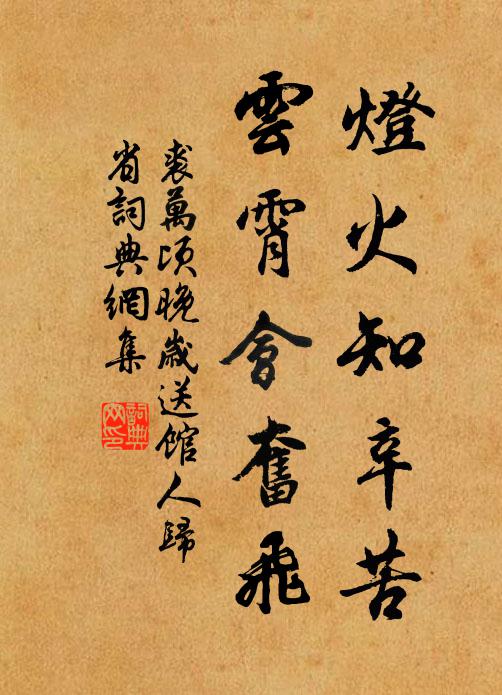 燈火知辛苦
雲霄會奮飛
裘萬頃晚歲送館人歸
省詞典網集
詞典網印